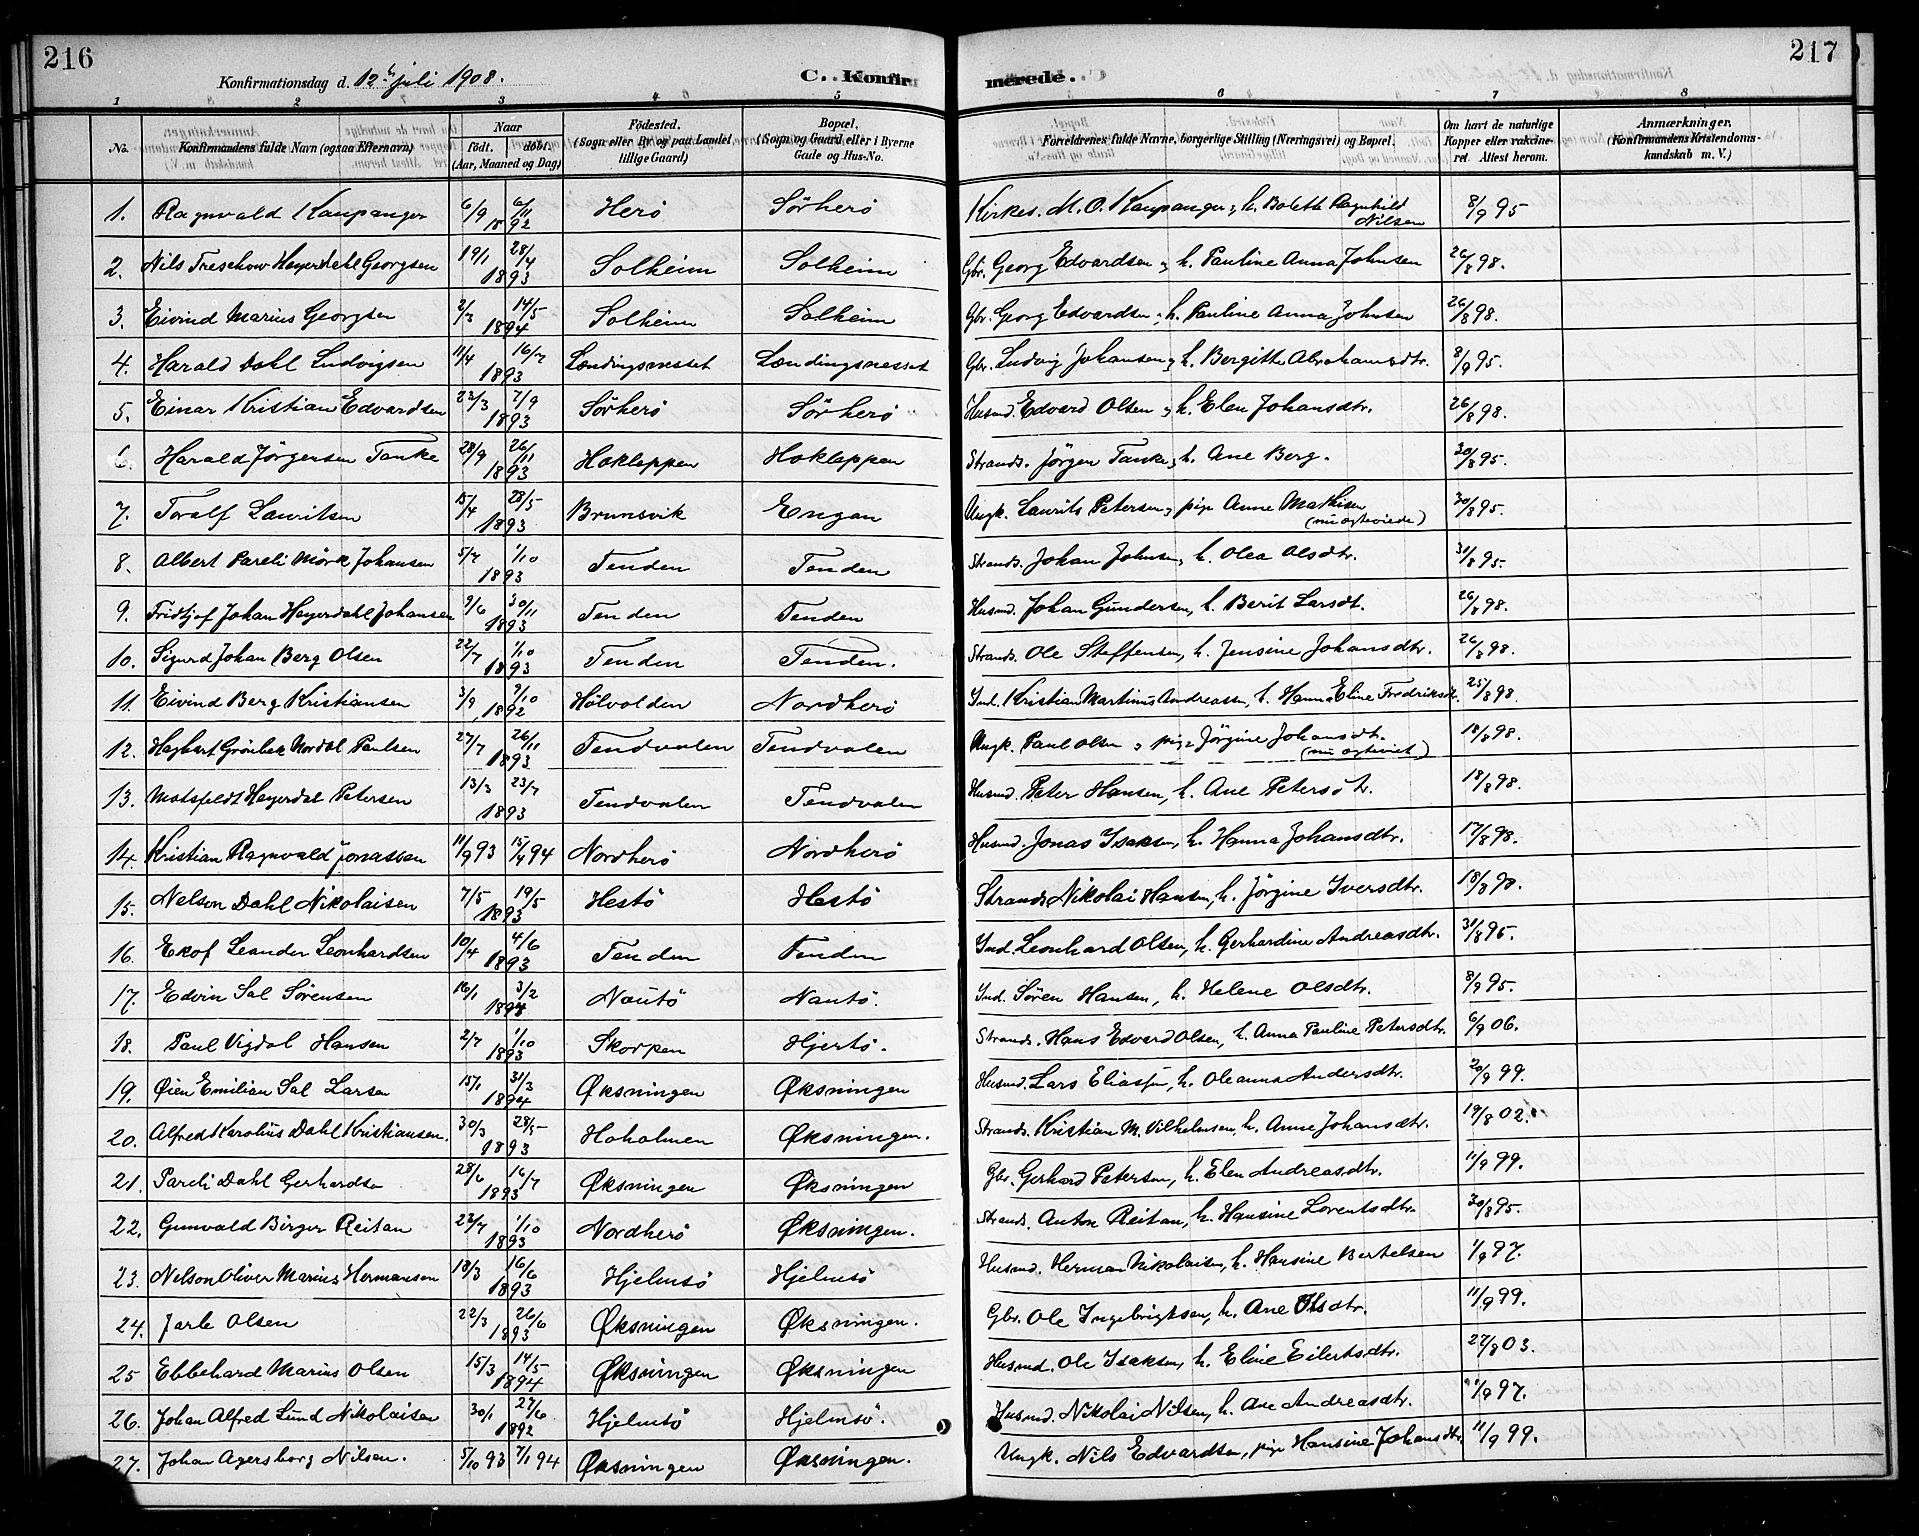 216
217
Konfirmationsdag d. 12te juli 1908.
C. Konfirmerede.
1 2 3 4 5 6 7 8
No.
Konfirmandens fulde Navn (ogsaa Efternavn)
Naar
født. døbt.
(Aar, Maaned og Dag)
Fødested.
(Sogn eller By og paa Landet
tillige Gaard)
Bopæl.
(Sogn og Gaard eller i Byerne
Gade og Hus-No.
Forældrenes fulde Navne, borgerlige Stilling (Næringsvei) og Bopæl.
Om havt de naturlige
Kopper eller vakcine-
ret. Attest herom.
Anmærkninger.
(Konfirmandens Kristendoms-
kundskab m. V.)
1. Ragnvald Kaupanger 6/9 6/11 1892 Herö Sörherö Kirkes. M. O. Kaupanger, h. Bolette Ragnhild Nilsen 8/9 95
2. Nils Treschow Heyerdahl Georgsen 19/1 28/4 1893 Solheim Solheim Gbr. Georg Edvardsen, h. Pauline Anna Johnsen 26/8 98.
3. Eivind Marius Georgsen 2/3 14/5 1894 Solheim Solheim Gbr. Georg Edvardsen, h. Pauline Anna Johnsen 26/8 98.
4. Harald Dahl Ludvigsen 11/4 16/7 1893 Lændingsnesset Lændingsnesset Gbr. Ludvig Johansen, h. Bergitte Abrahamsdtr. 8/9 95.
5. Einar Kristian Edvardsen 23/3 7/9 1893 Sörherö Sörherö Husmd. Edvard Olsen, h. Elen Johansdtr. 26/8 98.
6. Harald Jörgensen Tanke 28/9 26/11 1893 Hoklappen Hoklappen Strands. Jörgen Tanke, h. Ane Berg. 30/8 95.
7. Toralf Lauritsen 15/4 28/5 1893 Brunsvik Engan Ungk. Laurits Petersen, pige Anne Mathisen (nu ægteviede) 30/8 95.
8. Albert Pareli Mörk Johansen 5/7 1/10 1893 Tenden Tenden Strands. Johan Johnsen, h. Olea Olsdtr. 31/8 95.
9. Fridtjof Johan Heyerdahl Johansen 9/6 30/11 1893 Tenden Tenden Husmd. Johan Gundersen, h. Berit Larsdt. 26/8 98.
10. Sigurd Johan Berg Olsen 22/7 1/10 1893 Tenden Tenden. Strands. Ole Steffensen, h. Jensine Johansdtr. 26/8 98.
11. Eivind Berg Kristiansen 3/9 9/10 1892 Hölvolden Nordherö Ind. Kristian Martinus Andreassen, h. Hanna Eline Fredriksdt. 25/8 98.
12. Hagbart Grönbek Nordal Paulsen 27/7 26/11 1893 Tendvalen Tendvalen Ungk. Paul Olsen, pige Jörgine Johansdt. (nu ægteviet) 18/8 98.
13. Motzfeldt Heyerdal Petersen 13/3 23/7 1893 Tendvalen Tendvalen Husmd. Peter Hansen, h. Ane Petersdt. 18/8 98.
14. Kristian Ragnvald Jonassen 11/9 93 15/4 94 Nordherö Nordherö Husmd. Jonas Isaksen, h. Hanna Johansdtr. 17/8 98.
15. Nelson Dahl Nikolaisen 7/5 19/5 1893 Hestö Hestö Strands. Nikolai Hansen, h. Jörgine Iversdtr. 18/8 98.
16. Ekof Leander Leonhardsen 10/4 4/6 1893 Tenden Tenden Ind. Leonhard Olsen, h. Gerhardine Andreasdtr. 31/8 95.
17. Edvin Sal Sørensen 16/1 3/2 1894 Nautö Nautö. Ind. Søren Hansen, h. Helene Olsdtr. 8/9 95.
18. Paul Vigdal Hansen 2/7 1/10 1893 Skorpen Hjertö. Strands. Hans Edvard Olsen, h. Anna Pauline Petersdtr. 6/9 06.
19. Øien Emilian Sal Larsen 15/1 31/3 1894 Øksningen Øksningen Husmd. Lars Eliassen, h. Oleanna Andersdtr. 20/9 99.
20. Alfred Karolius Dahl Kristiansen. 30/3 28/5 1893 Hoholmen Øksningen. Strands. Kristian M. Vilhelmsen, h. Anne Johansdtr. 19/8 02.
21. Pareli Dahl Gerhardsen 28/6 16/7 1893 Øksningen Øksningen Gbr. Gerhard Petersen, h. Elen Andreasdtr. 11/9 99.
22. Gunvald Birger Reitan 22/7 1/10 1893 Nordherö Øksningen. Strands. Anton Reitan, h. Hansine Lorentsdtr. 30/8 95.
23. Nelson Oliver Marius Hermansen 18/3 16/6 1893 Hjelmsö Hjelmsö Husmd. Herman Nikolaisen, h. Hansine Bertelsen 1/9 97.
24. Jarle Olsen 22/3 26/6 1893 Øksningen Øksningen. Gbr. Ole Ingebrigtsen, h. Ane Olsdtr. 11/9 99.
25 Ebbehard Marius Olsen 15/3 14/5 1894 Øksningen Øksningen Husmd. Ole Isaksen, h. Eline Eilertsdtr. 27/8 03.
26. Johan Alfred Lund Nikolaisen 30/1 27/6 1892 Hjelmsö Hjelmsö. Husmd. Nikolai Nilsen, h. Ane Andreasdtr. 11/9 97.
27. Johan Agersborg Nilsen. 5/10 93 7/1 94 Øksningen Øksningen. Ungk. Nils Edvardsen, pige Hansine Johansdtr. 11/9 99.